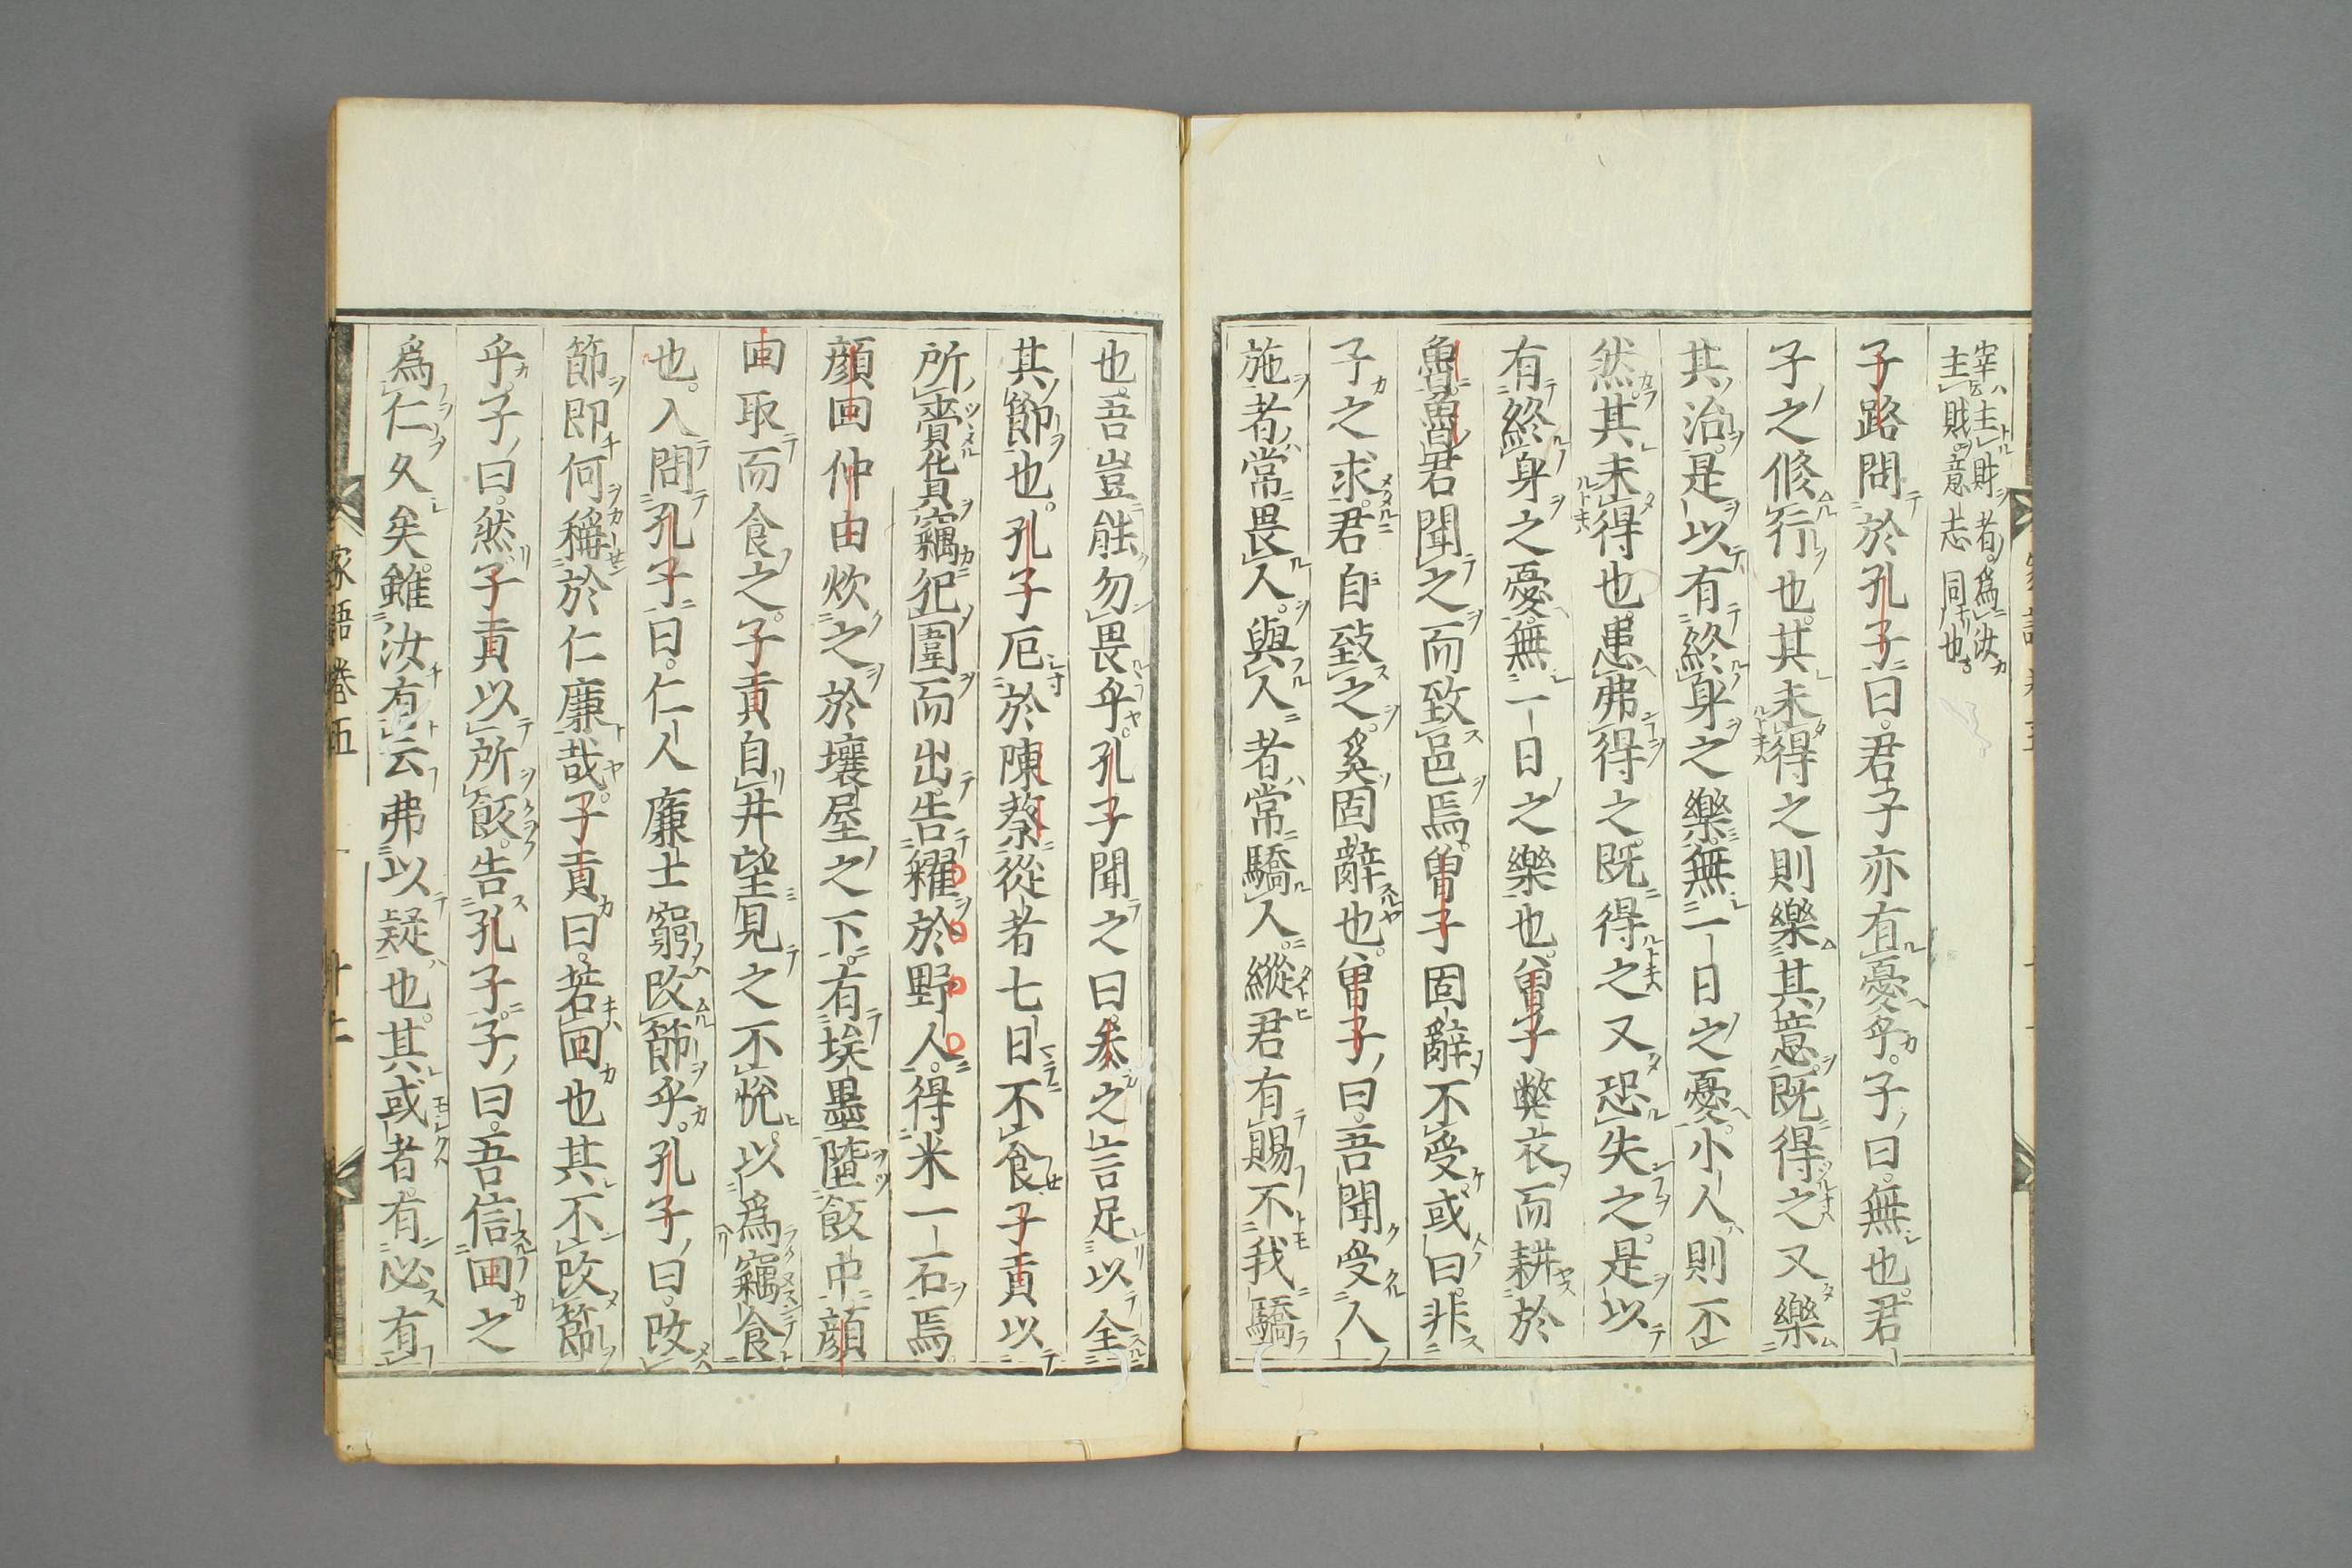 宰主財者爲汝
主財意志同也
子路問於孔子曰君子亦有憂乎子曰無也君
子之修行也其未得之則樂其意既得之又樂
其治是以有終身之樂無一日之憂小人則不
然其未得也患弗得之既得之又恐失之是以
有終身之憂無一日之樂也曽子弊衣而耕於
魯魯君聞之而致邑焉曽子固辭不受或曰非
子之求君自致之奚固辭也曽子曰吾聞受人
施者常畏人與人者常驕人縱君有賜不我驕
也吾豈能勿畏乎孔子聞之曰参之言足以全
其節也孔子厄於陳蔡從者七日不食子貢以
所賷貨竊犯圍而出告糴於野人得米一石焉
顔回仲由炊之於壤屋之下有埃墨墮飯中顔
回取而食之子貢自井望見之不悅以爲竊食
也入問孔子曰仁人廉士窮改節乎孔子曰改
節即何稱於仁廉哉子貢曰若回也其不改節
乎子曰然子貢以所飯告孔子子曰吾信回之
爲仁久矣雖汝有云弗以疑也其或者有必有
家語卷五
十二